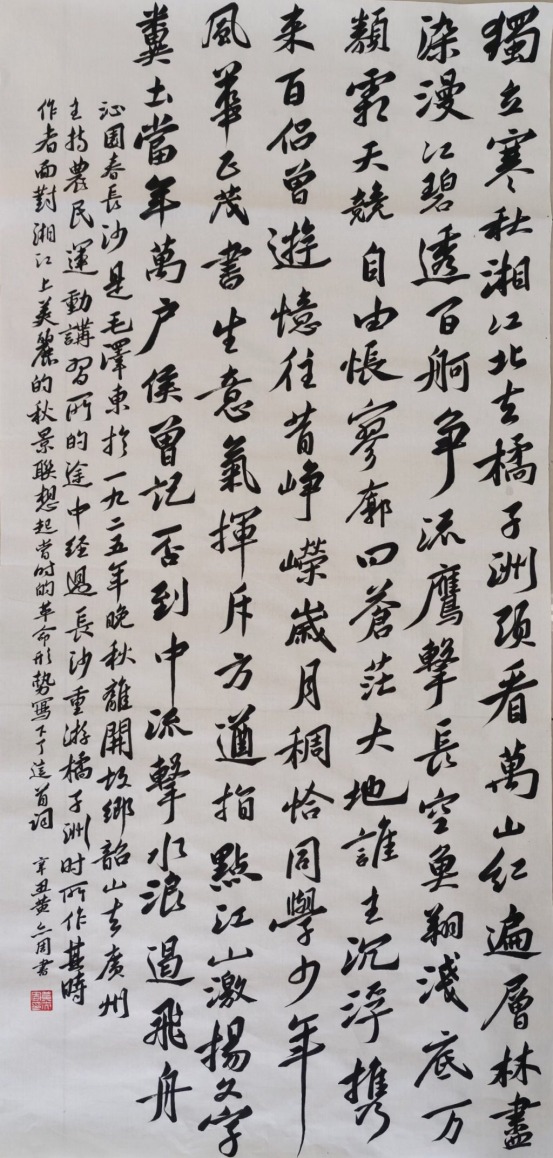 獨立寒秋湘江北去橘子洲頭看萬山红遍層林盡
染漫江碧透百舸争流鷹擊長空魚翔淺底万
類霜天競自由悵寥廓问蒼茫大地誰主沉浮携
来百侣曾遊憶往昔峥嶸歲月稠恰同學少年
風華正茂書生意氣揮斥方遒指點江山激揚文字
糞土當年萬户侯曾記否到中流擊水浪遏飛舟
沁園春長沙是毛澤東於一九二五年晚秋離開故鄉韶山去廣州
主持農民運動講習所的途中经過長沙重游橘子洲时所作其時
作者面對湘江上美麗的秋景聯想起当时的革命形勢寫下了這首词 辛丑黄周書